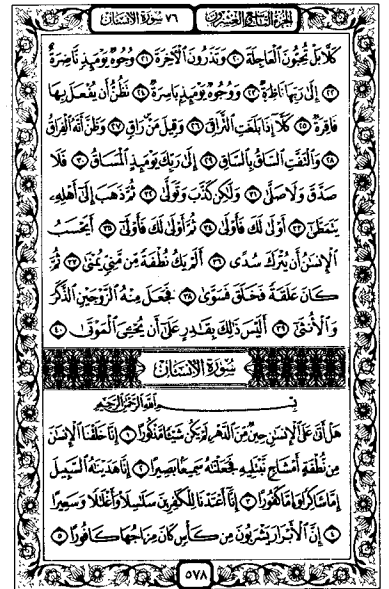 الجزء التاسع والعشرون ٧٦ سورة الإنسان
كَلَّا بَلْ تُحِبُّونَ ٱلْعَاجِلَةَ ٢٠ وَتَذَرُونَ ٱلْآخِرَةَ ٢١ وُجُوهٌ يَوْمَئِذٍ نَّاضِرَةٌ
٢٢ إِلَىٰ رَبِّهَا نَاظِرَةٌ ٢٣ وَوُجُوهٌ يَوْمَئِذٍ بَاسِرَةٌ ٢٤ تَظُنُّ أَن يُفْعَلَ بِهَا
فَاقِرَةٌ ٢٥ كَلَّا إِذَا بَلَغَتِ ٱلتَّرَاقِيَ ٢٦ وَقِيلَ مَنْ رَاقٍ ٢٧ وَظَنَّ أَنَّهُ ٱلْفِرَاقُ
٢٨ وَٱلْتَفَّتِ ٱلسَّاقُ بِٱلسَّاقِ ٢٩ إِلَىٰ رَبِّكَ يَوْمَئِذٍ ٱلْمَسَاقُ ٣٠ فَلَا
صَدَّقَ وَلَا صَلَّىٰ ٣١ وَلَٰكِن كَذَّبَ وَتَوَلَّىٰ ٣٢ ثُمَّ ذَهَبَ إِلَىٰ أَهْلِهِۦ
يَتَمَطَّىٰٓ ٣٣ أَوْلَىٰ لَكَ فَأَوْلَىٰ ٣٤ ثُمَّ أَوْلَىٰ لَكَ فَأَوْلَىٰٓ ٣٥ أَيَحْسَبُ
ٱلْإِنسَٰنُ أَن يُتْرَكَ سُدًى ٣٦ أَلَمْ يَكُ نُطْفَةً مِّن مَّنِىٍّ يُمْنَىٰ ٣٧ ثُمَّ
كَانَ عَلَقَةً فَخَلَقَ فَسَوَّىٰ ٣٨ فَجَعَلَ مِنْهُ ٱلزَّوْجَيْنِ ٱلذَّكَرَ
وَٱلْأُنثَىٰٓ ٣٩ أَلَيْسَ ذَٰلِكَ بِقَٰدِرٍ عَلَىٰٓ أَن يُحْـِۧىَ ٱلْمَوْتَىٰ ٤٠
سورة الإنسان
بِسْمِ ٱللَّهِ ٱلرَّحْمَٰنِ ٱلرَّحِيمِ
هَلْ أَتَىٰ عَلَى ٱلْإِنسَٰنِ حِينٌ مِّنَ ٱلدَّهْرِ لَمْ يَكُن شَيْـًٔا مَّذْكُورًا ١ إِنَّا خَلَقْنَا ٱلْإِنسَٰنَ
مِن نُّطْفَةٍ أَمْشَاجٍ نَّبْتَلِيهِ فَجَعَلْنَٰهُ سَمِيعًۢا بَصِيرًا ٢ إِنَّا هَدَيْنَٰهُ ٱلسَّبِيلَ
إِمَّا شَاكِرًا وَإِمَّا كَفُورًا ٣ إِنَّآ أَعْتَدْنَا لِلْكَٰفِرِينَ سَلَٰسِلَا۟ وَأَغْلَٰلًا وَسَعِيرًا
٤ إِنَّ ٱلْأَبْرَارَ يَشْرَبُونَ مِن كَأْسٍ كَانَ مِزَاجُهَا كَافُورًا ٥
٥٧٨